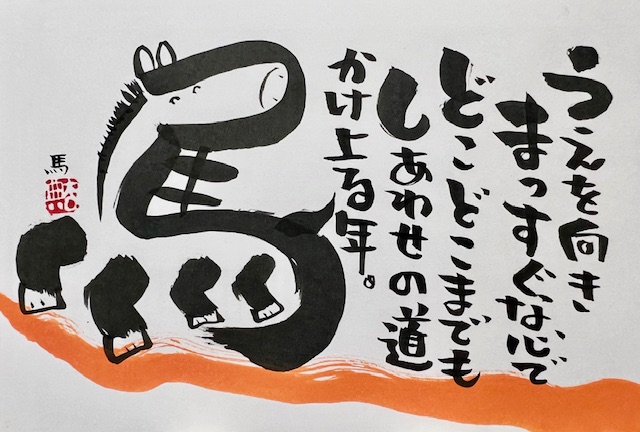 うえを向き
まっすぐな心で
どこどこまでも
しあわせの道
かけ上る年。
馬